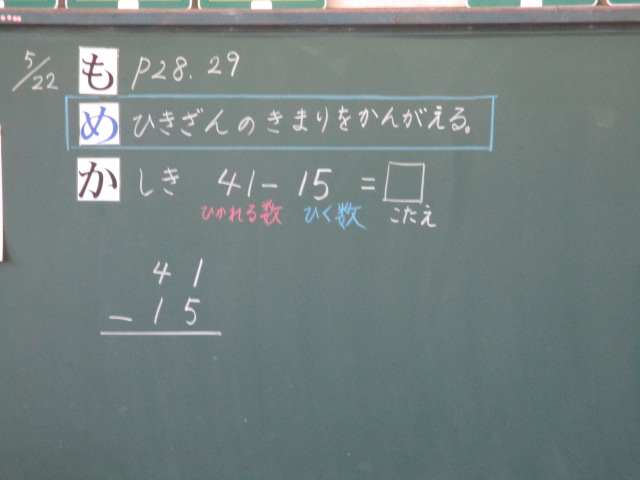 5/22 も P28.29
め ひきざんのきまりをかんがえる。
か しき 41-15=□
ひかれる数 ひく数 こたえ
41
-15